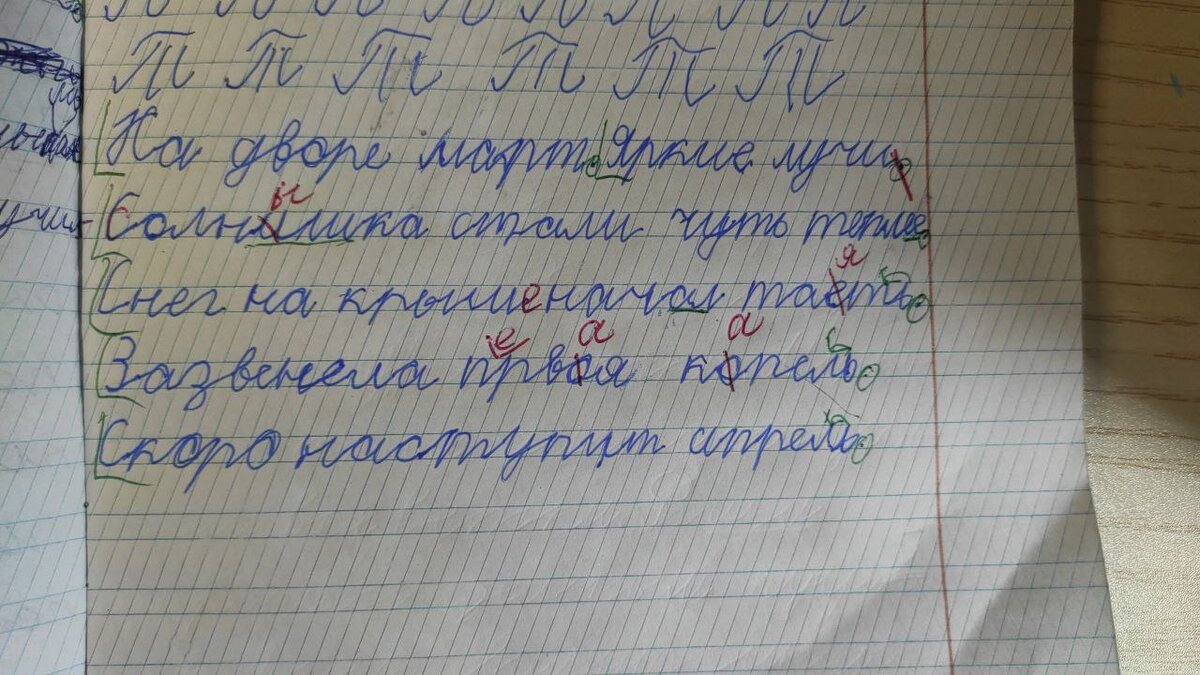 П П П П П П П П
Т Т Т Т Т Т
На дворе март. Яркие лучи.
Солнышка стали чуть теплее.
Снег на крыше начал таять.
Зазвенела первая капель.
Скоро наступит апрель.